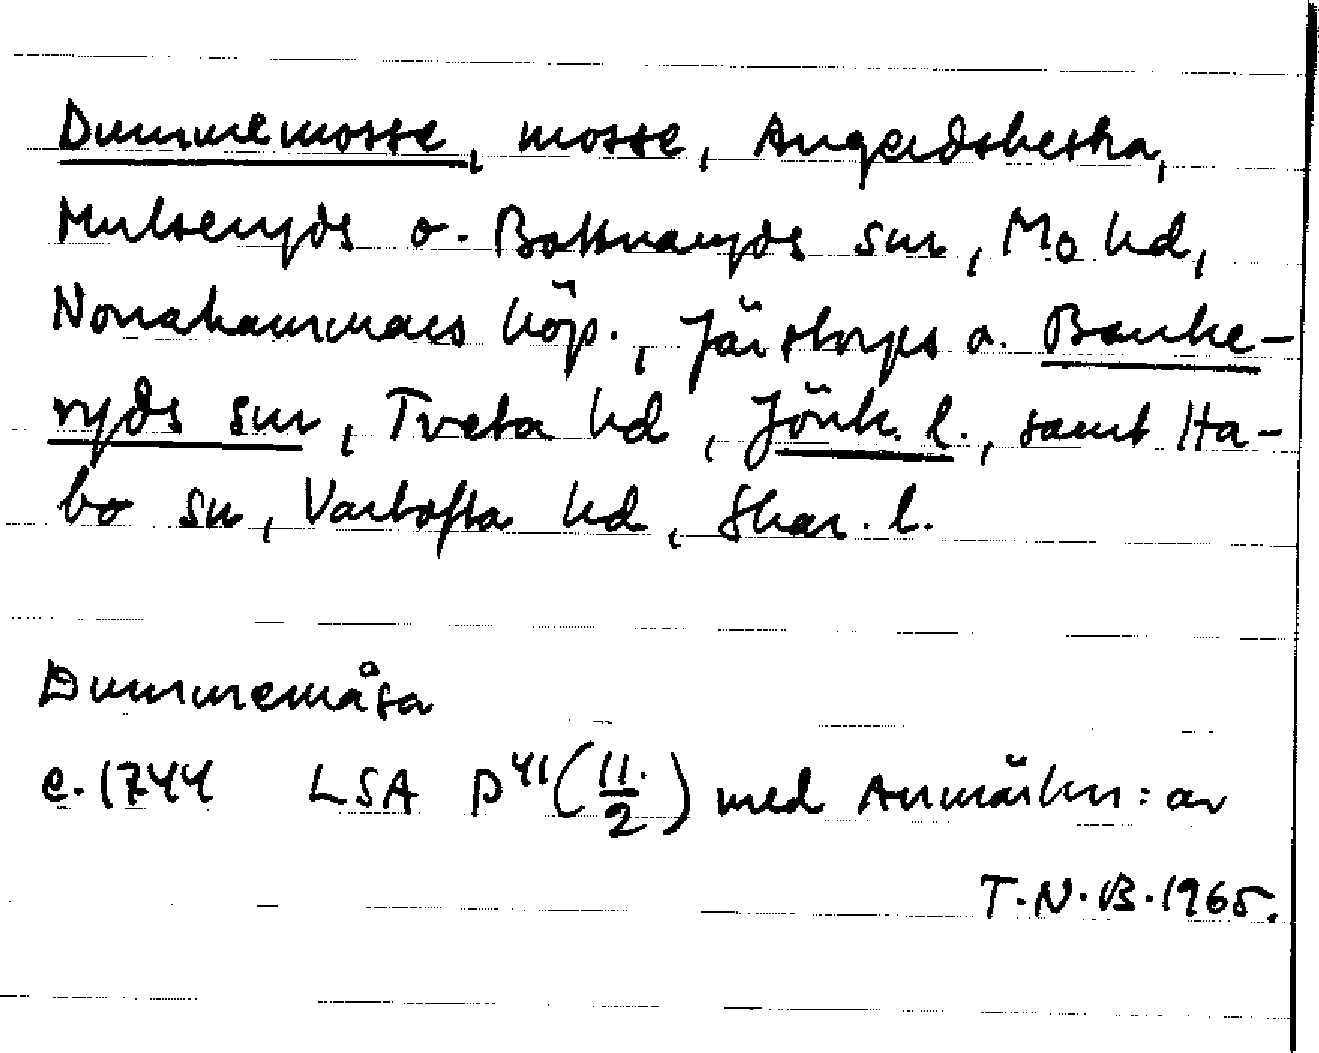 Dummemosse, mosse, Angerdshestra,
Mulseryds o. Bottnaryds snr, Mo hd,
Norrahammars köp., Järstorps o. Banke-
ryds snr, Tveta hd, Jönk. l., samt Ha-
bo sn, Vartofta hd, Skar. l.
Dummemåsa
c. 1744 LSA D⁴¹(11./2) med Anmärkn: av
T.N.B. 1965.